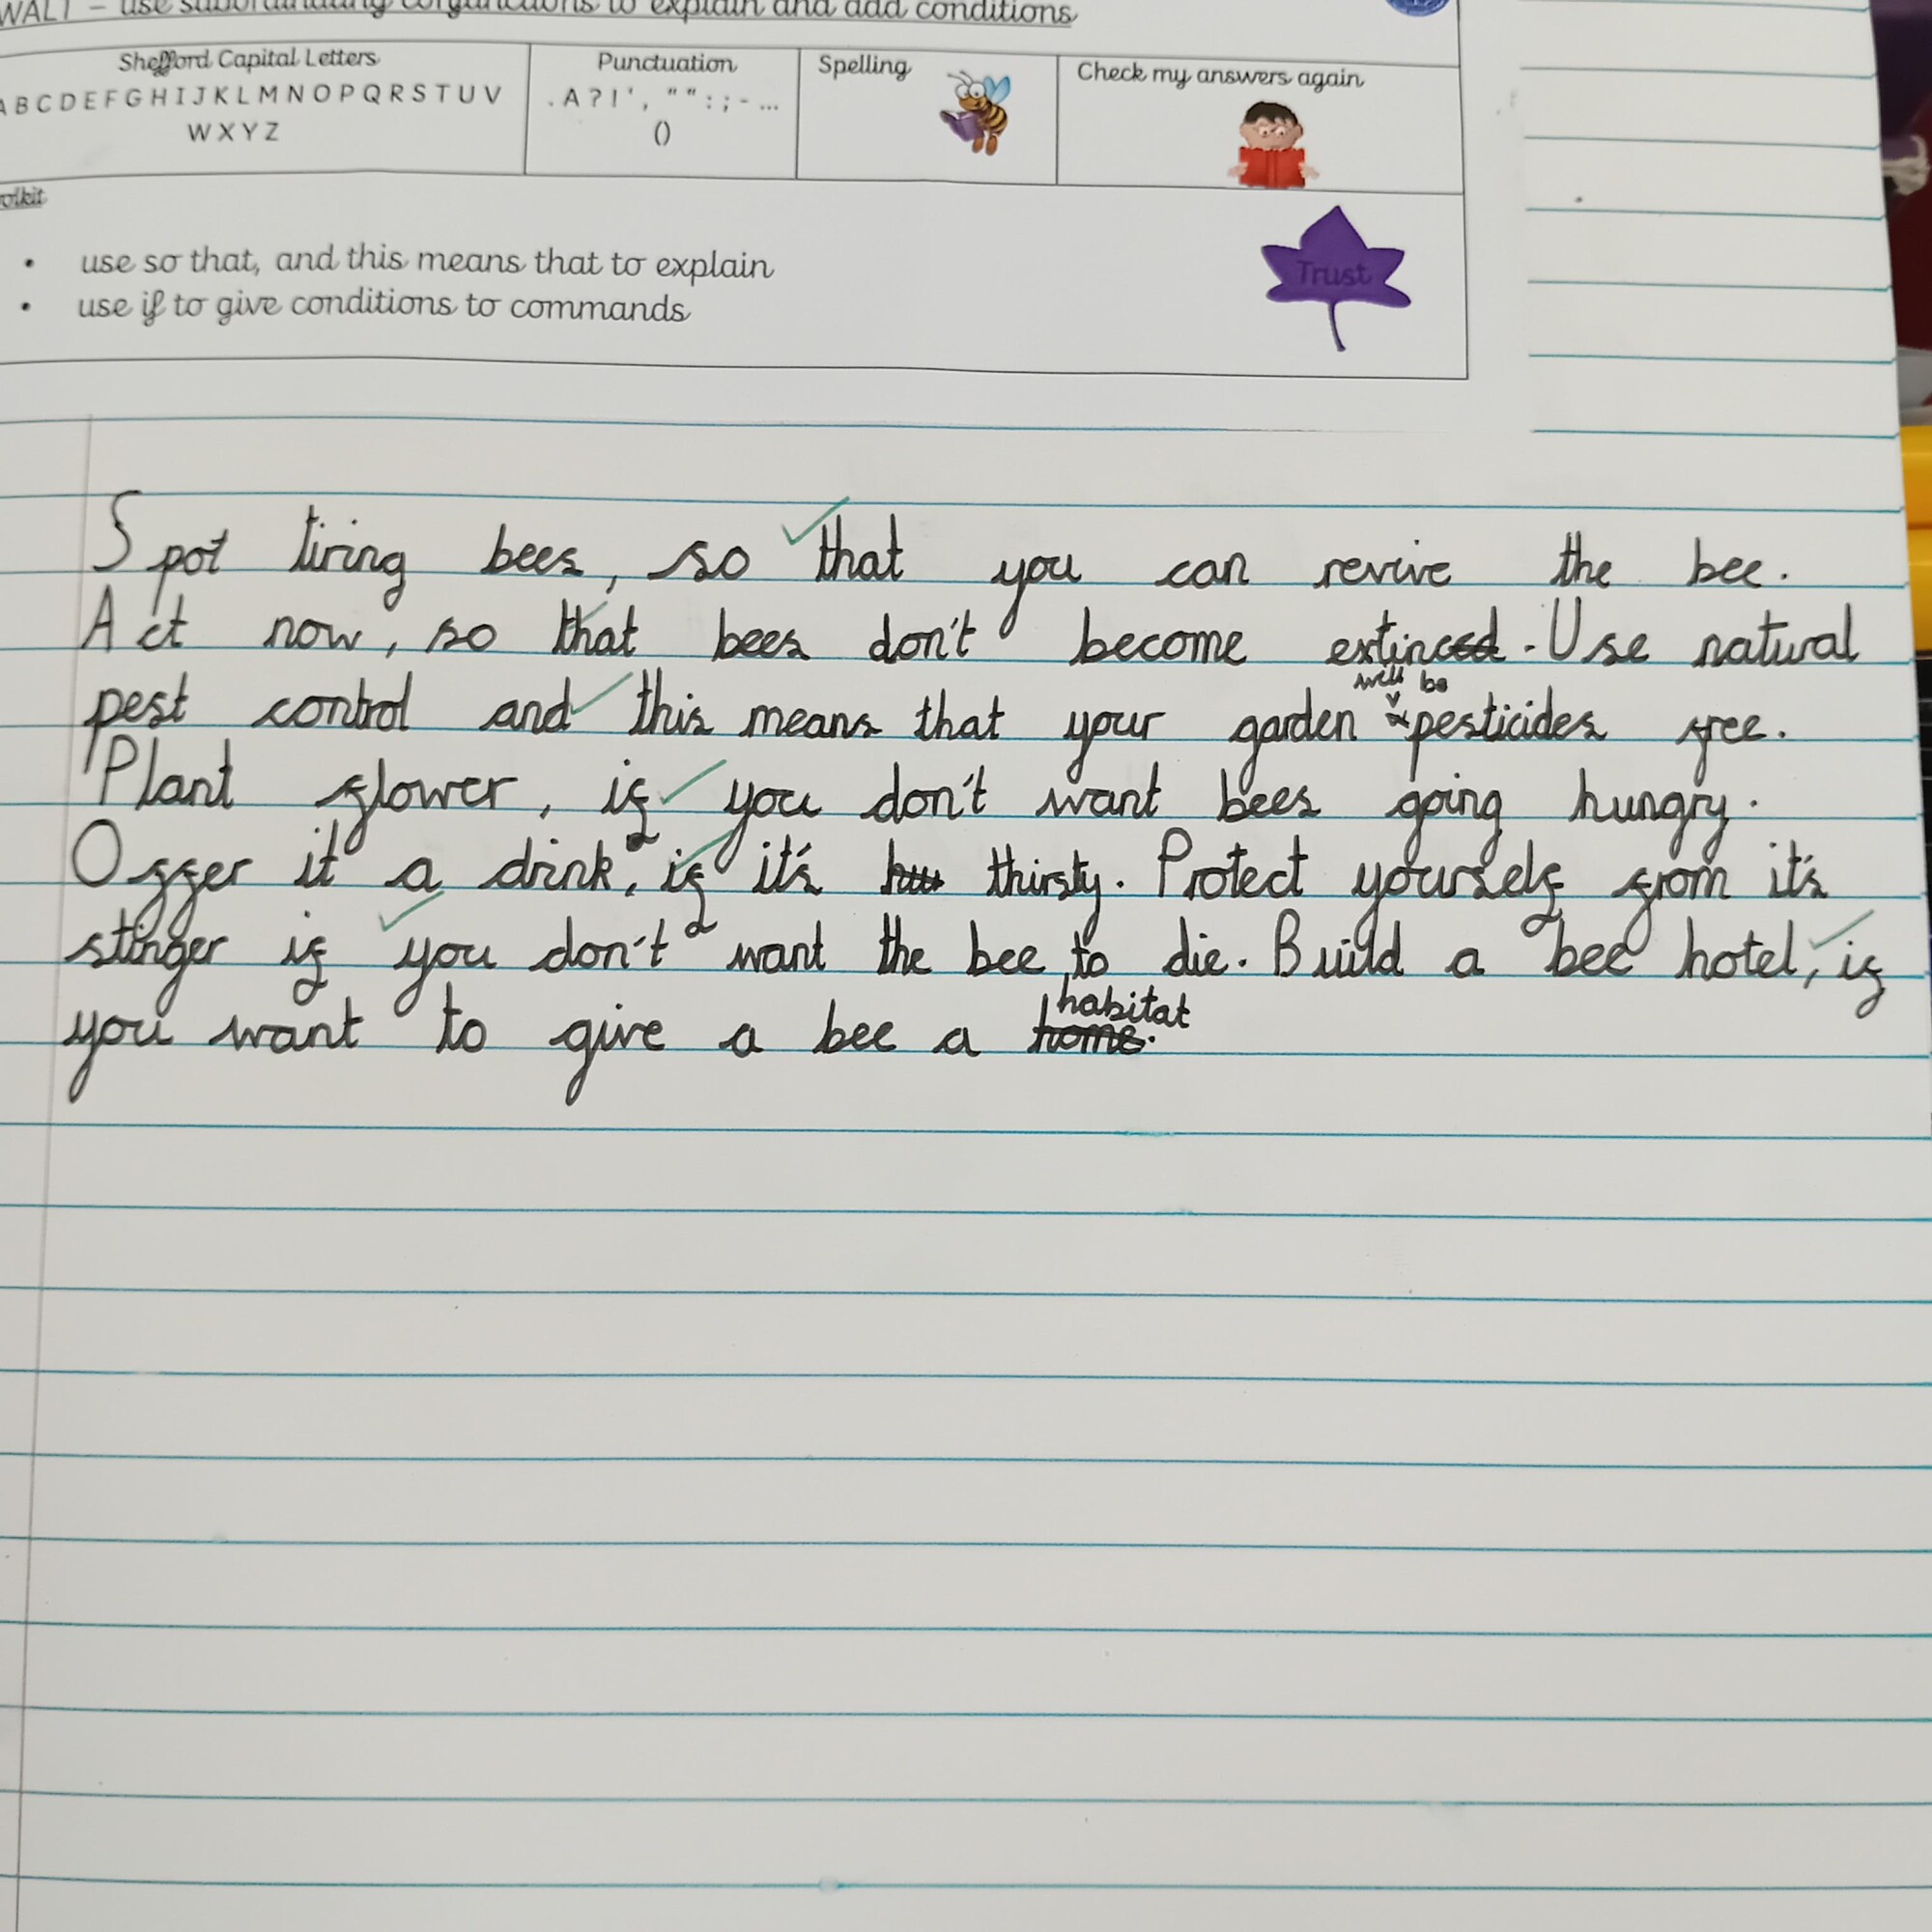 WALT – use subordinating conjunctions to explain and add conditions
Shefford Capital Letters
A B C D E F G H I J K L M N O P Q R S T U V
W X Y Z
Punctuation
. A ? ! ' , " " : ; - ...
()
Spelling
Check my answers again
olkit
• use so that, and this means that to explain
• use if to give conditions to commands
Trust
Spot tiring bees, so that you can revive the bee.
Act now, so that bees don't become extinced. Use natural
will be
pest control and this means that your garden pesticides free.
Plant flower, if you don't want bees going hungry.
Offer it a drink, if it's thirsty. Protect yourself from it's
stinger if you don't want the bee to die. Build a bee hotel, if
habitat
you want to give a bee a home.